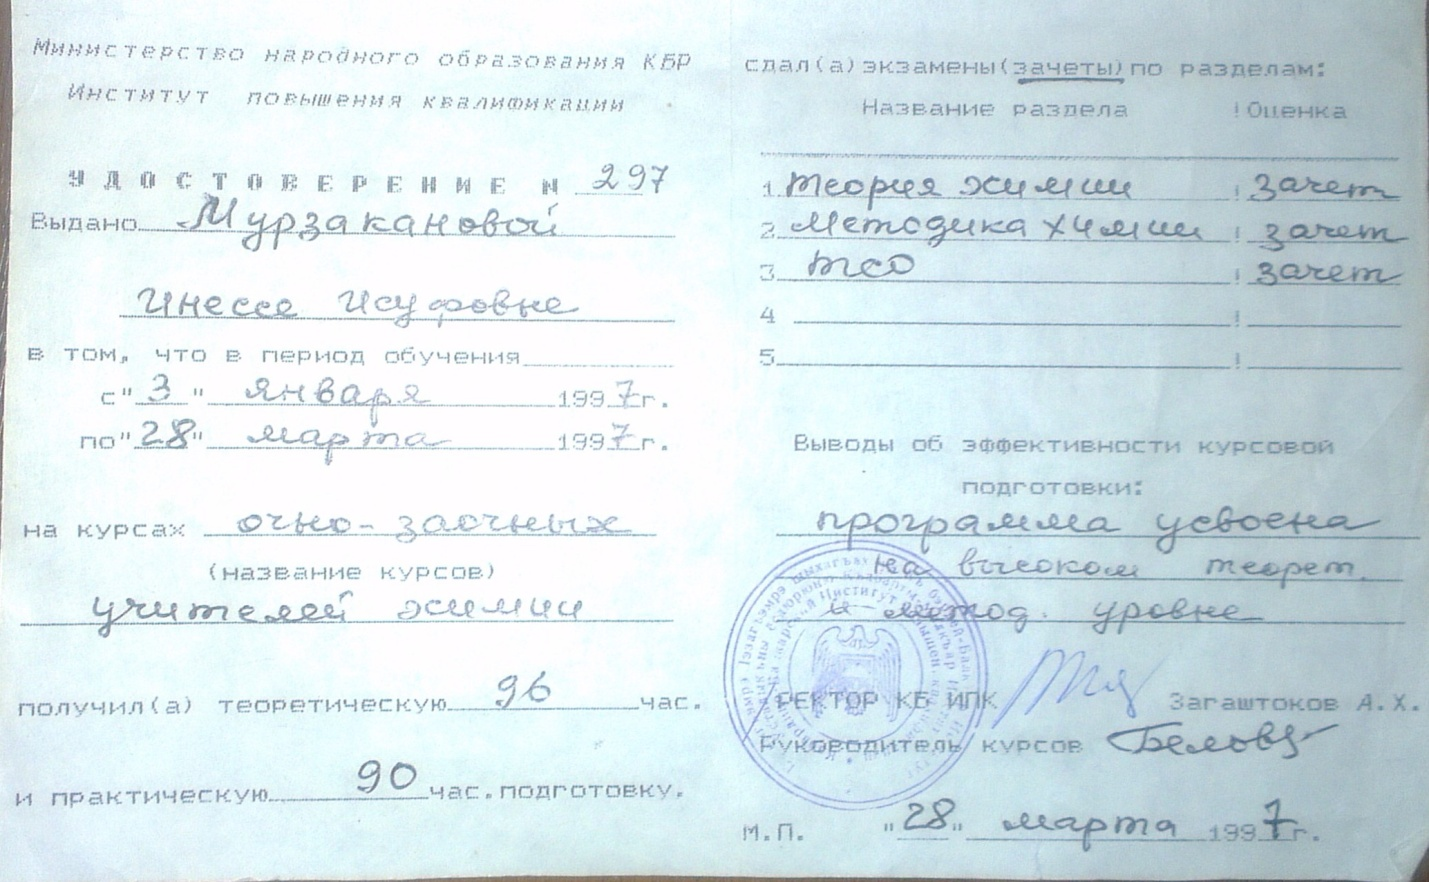 Министерство народного образования КБР
Институт повышения квалификации
УДОСТОВЕРЕНИЕ N 297
Выдано Мурзакановой
Инессе Исуфовне
в том, что в период обучения
с "3" января 1997г.
по "28" марта 1997г.
на курсах очно-заочных
(название курсов)
учителей химии
получил(а) теоретическую 96 час.
и практическую 90 час. подготовку.
сдал(а) экзамены(зачеты) по разделам:
Название раздела ! Оценка
1 теория химии ! зачет
2 методика химии ! зачет
3 ТСО ! зачет
4 !
5 !
Выводы об эффективности курсовой
подготовки:
программа усвоена
на высоком теорет.
и метод. уровне
РЕКТОР КБ ИПК Загаштоков А.Х.
Руководитель курсов
М.П. "28" марта 1997г.